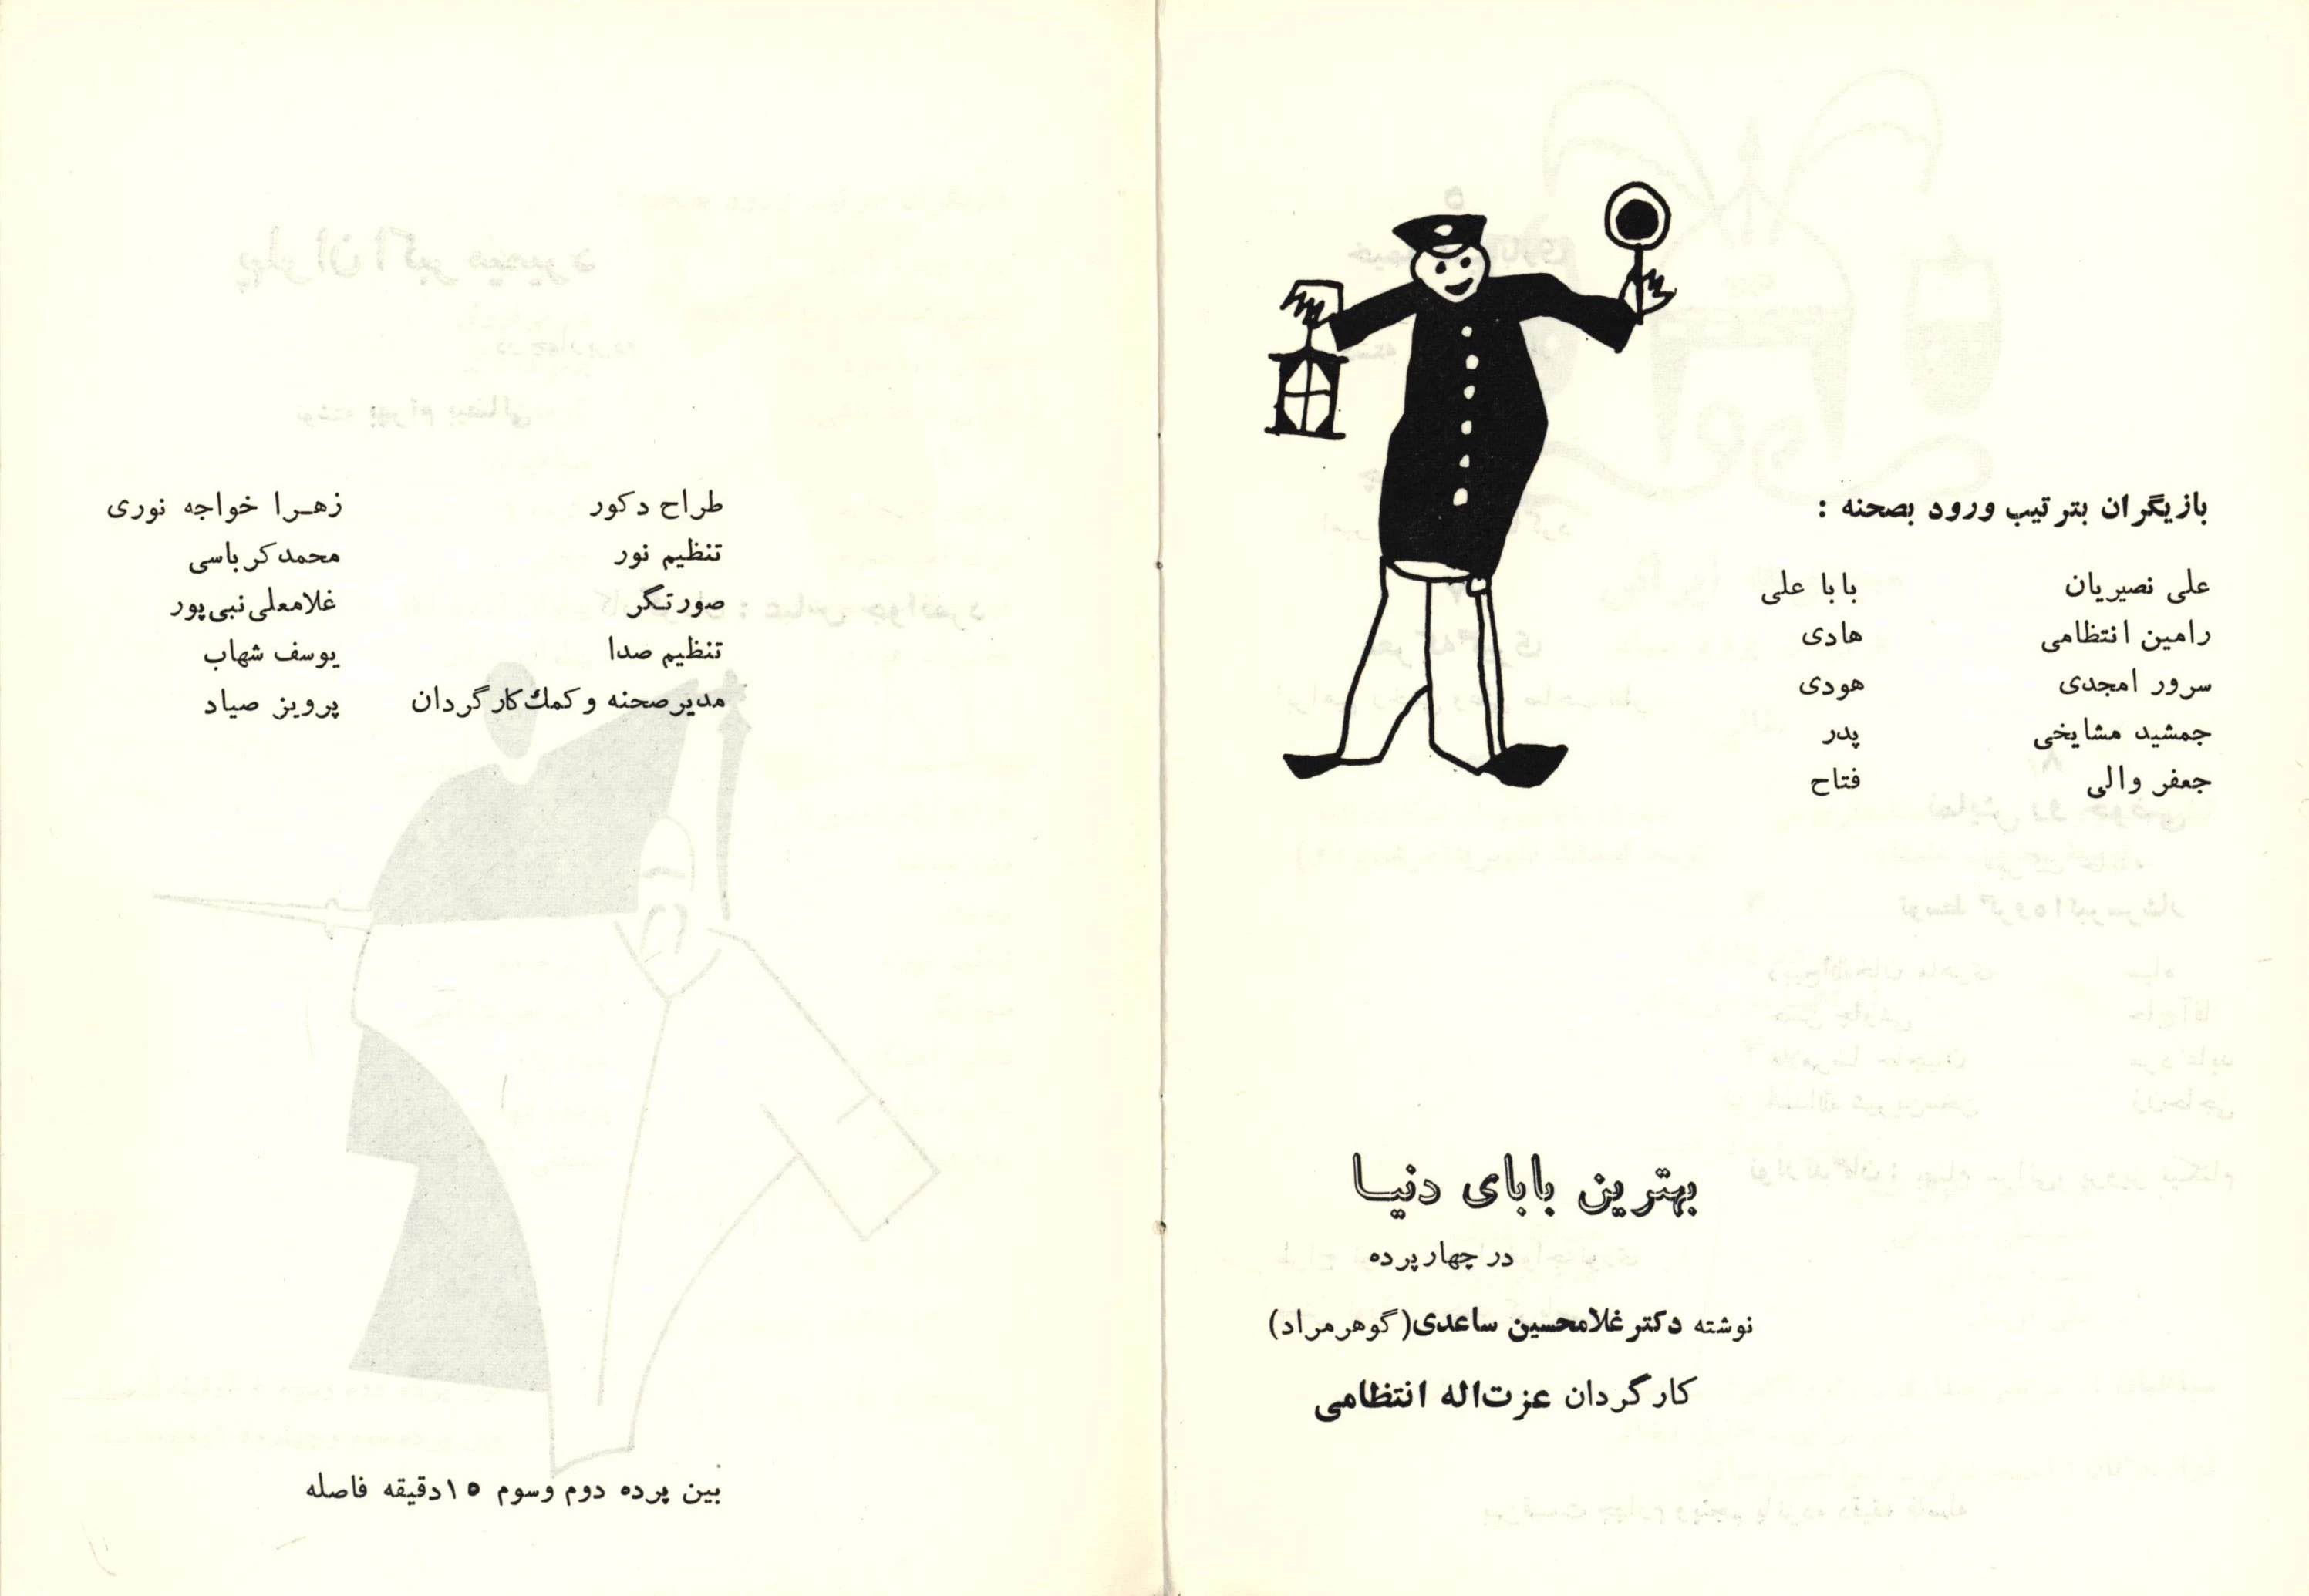 بازیگران بترتیب ورود بصحنه :
علی نصیریان بابا علی
رامین انتظامی هادی
سرور امجدی هودی
جمشید مشایخی پدر
جعفر والی فتاح
بهترین بابای دنیا
در چهار پرده
نوشته دکتر غلامحسین ساعدی (گوهر مراد)
کارگردان عزت‌اله انتظامی
طراح دکور زهرا خواجه نوری
تنظیم نور محمد کرباسی
صورتگر غلامعلی نبی‌پور
تنظیم صدا یوسف شهاب
مدیر صحنه و کمك کارگردان پرویز صیاد
بین پرده دوم وسوم ۱۵ دقیقه فاصله